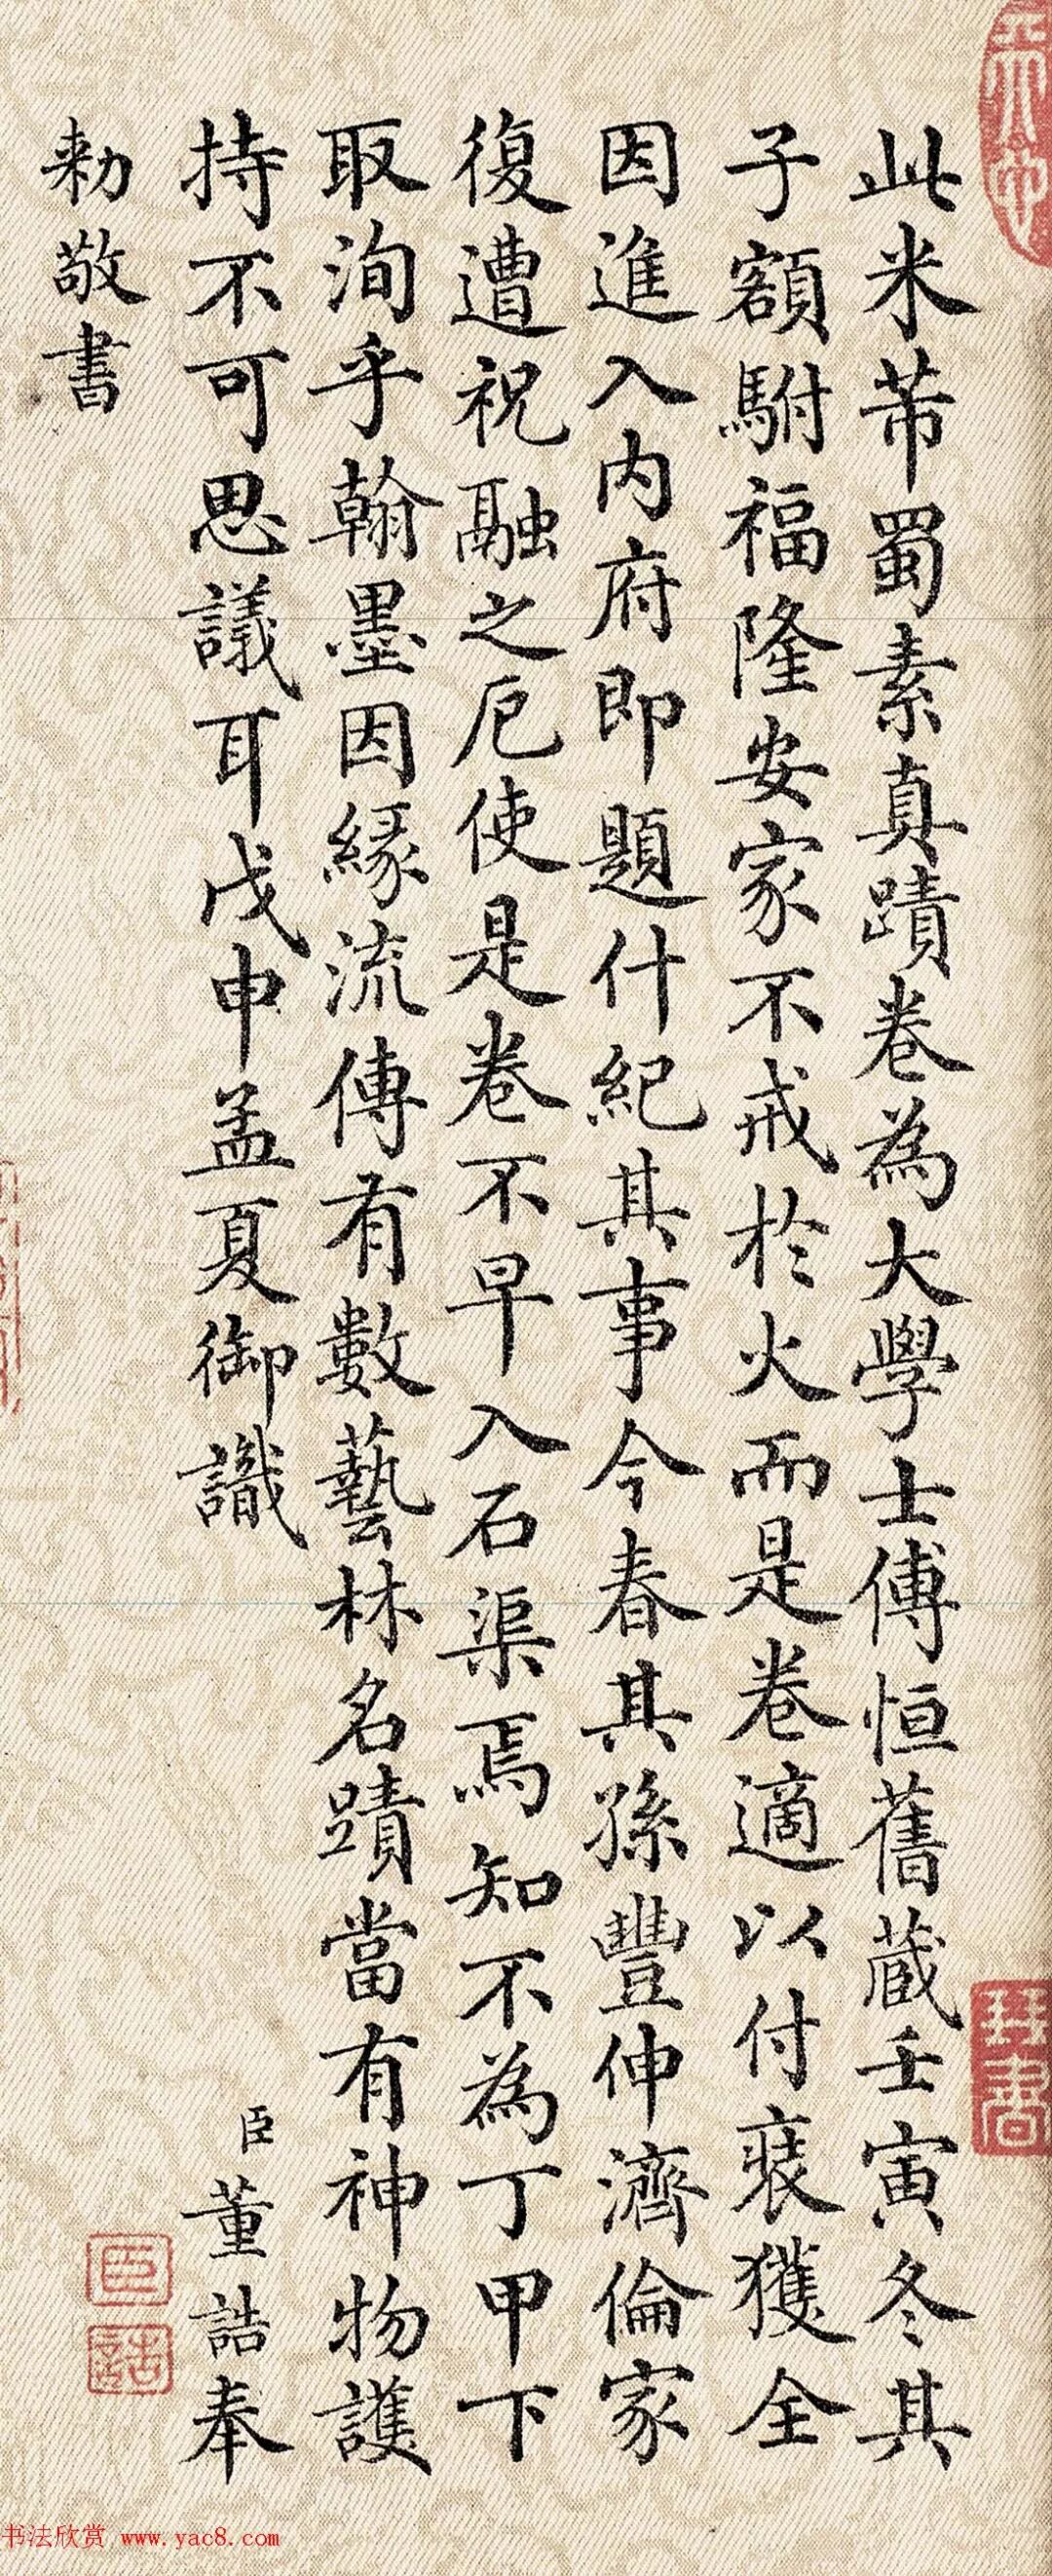 此米芾蜀素真蹟卷為大學士傅恒舊蔵壬寅冬其
子額駙福隆安家不戒於火而是卷適以付裝獲全
因進入內府即題什紀其事今春其孫豐伸濟倫家
復遭祝融之厄使是卷不早入石渠焉知不為丁甲下
取洵乎翰墨因緣流傳有數藝林名蹟當有神物護
持不可思議耳戊申孟夏御識
臣董誥奉
勅敬書
臣
誥
琴書
书法欣赏 www.yac8.com